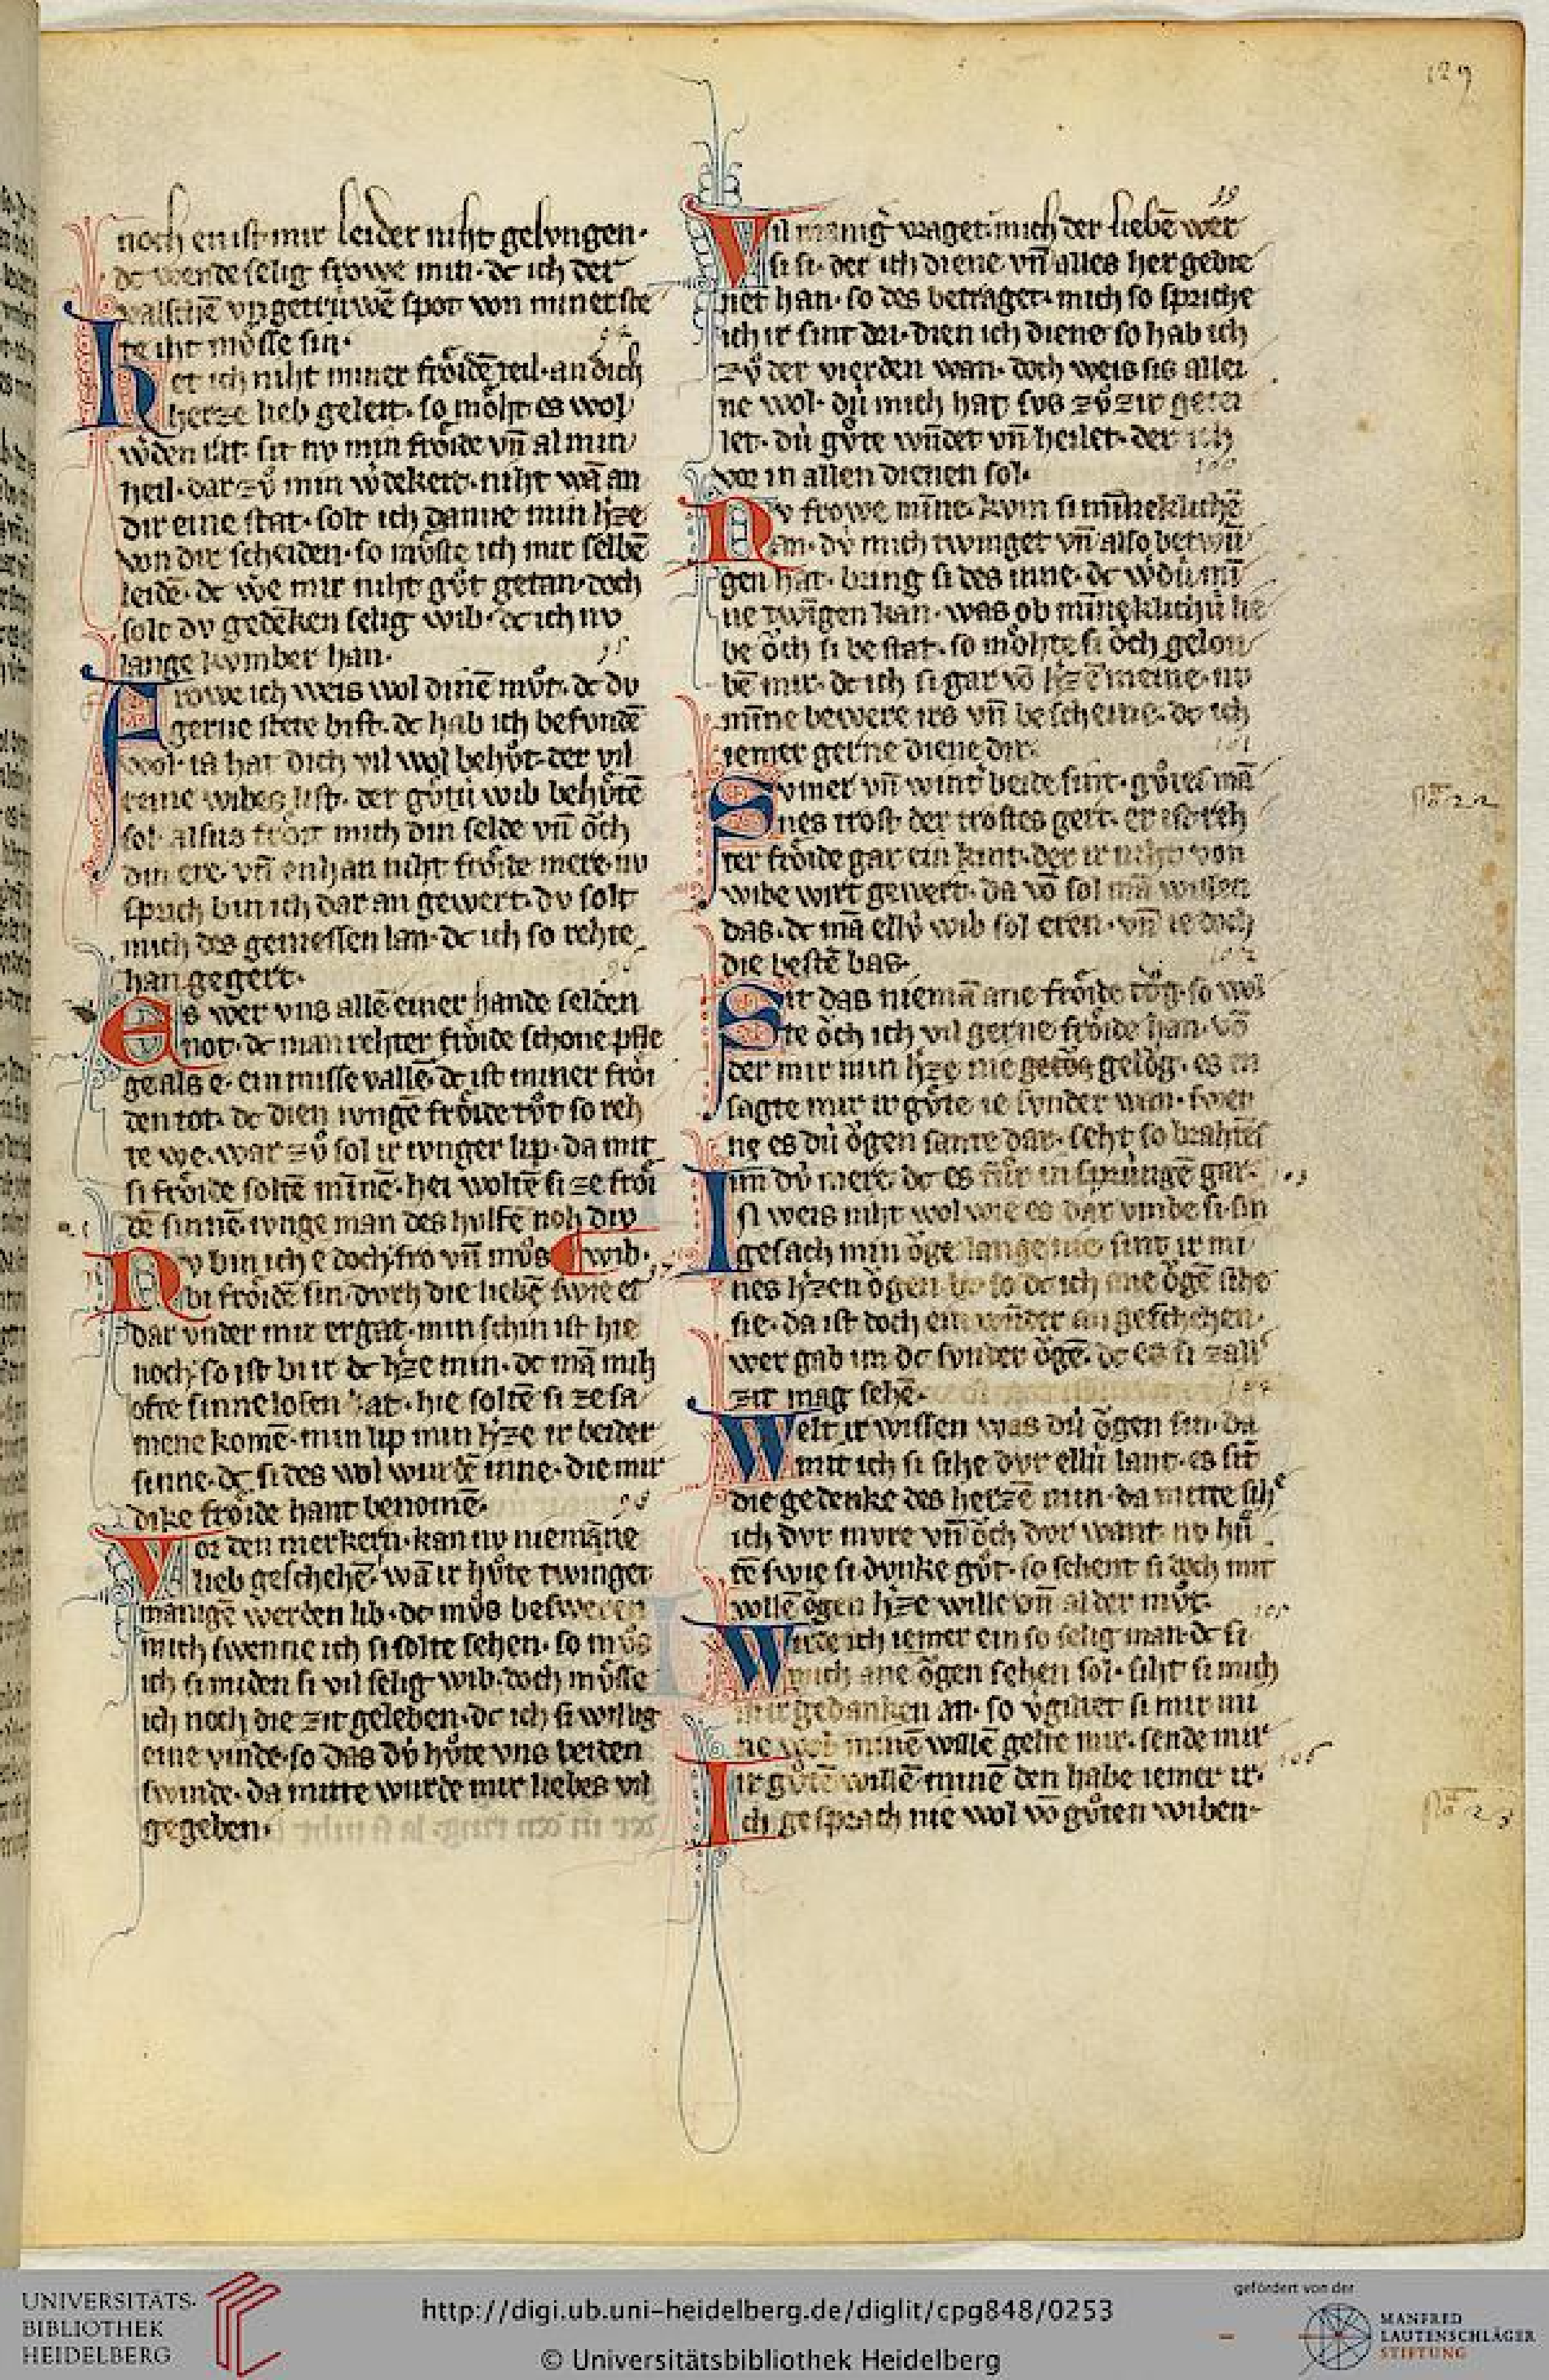 129
noch en ist mir leider niht gelvngen·
dc wende selig frowe min· dc ich der
valschē vngetrúwē spot von miner ste
te iht mv̊sse sin·
94
Het ich niht miner frȯidē teil· an dich
herze lieb geleit· so mȯht es wol
wˢden rat· sit nv min frȯide vn̄ al min
heil· dar zv̊ min wˢdekeit· niht wā an
dir eine stat· solt ich danne min hˢze
von dir scheiden· so mv̊ste ich mir selbē
leidē· dc we mir niht gv̊t getan· doch
solt dv gedēken selig wib· dc ich nv
lange kvmber han·
95
Frowe ich weis wol dinē mv̊t· dc dv
gerne stete bist· dc hab ich befvndē
wol· ia hat dich vil wol behv̊t· der vil
reine wibes list· der gv̊tú wib behv̊tē
sol· alsus frȯit mich din selde vn̄ ȯch
din ere· vn̄ enhan niht frȯide mere· nv
sprich bin ich dar an gewert· dv solt
mich des geniessen lan· dc ich so rehte
han gegert·
96
Es wer vns allē einer hande selden
not· dc man rehter frȯide schone pfle
ge als e· ein misse vallē· dc ist miner frȯi
den tot· dc dien ivngē frȯide tv̊t so reh
te we· war zv̊ sol ir ivnger lip· da mit
si frȯide soltē minnē· hei woltē si ze frȯi
dē sinnē· ivnge man des hulfē noh div
Nv bin ich e doch fro vn̄ mv̊s ¶ wib·
97
bi frȯidē sin· dvrh die liebē swie es
dar vnder mir ergat· min schin ist hie
noch· so ist bi ir dc hˢze min· dc mā mih
ofte sinnelosen hat· hie soltē si ze sa
mene komē· min lip min hˢze ir beider
sinne· dc si des wol wurdē inne· die mir
dike frȯide hant benomē·
98
Vor den merkern· kan nv niemāne
lieb geschehē· wā ir hv̊te twinget
manigē werden lib· dc mv̊s besweren
mich swenne ich si solte sehen· so mv̊s
ich si miden si vil selig wib· doch mv̊sse
ich noch die zit geleben· dc ich si willig
eine vinde· so das dú hv̊te vns beiden
swinde· da mitte wurde mir liebes vil
gegeben·
99
Vil manigˢ vraget mich der liebē wer
si si· der ich diene vn̄ alles her gedie
net han· so des betraget mich so spriche
ich ir sint dri· dien ich diene so hab ich
zv̊ der vierden wan· doch weis sis allei
ne wol· dú mich hat svs zv̊ zir getei
let· dú gv̊te wn̄det vn̄ heilet· der ich
vor in allen dienen sol·
100
Nv frowe mīne· kvm si mīneklichē
an· dú mich twinget vn̄ also betwū
gen hat· bring si des inne· dc wˢ dú mī
ne twīgen kan· was ob mīneklichú lie
be ȯch si bestat· so mȯhte si ȯch gelou
bē mir· dc ich si gar vō hˢzē meine· nv
mīne bewere irs vn̄ bescheine· dc ich
iemer gerne diene dir·
101
Svmer vn̄ wintˢ beide sint· gv̊tes mā
nes trost der trostes gert· er ist reh
ter frȯide gar ein kint· der ir niht von
wibe wirt gewert· da vō sol mā wissen
das· dc mā ellú wib sol eren· vn̄ ie doch
die bestē bas·
102
Sit das niemā ane frȯide tȯg· so wol
te ȯch ich vil gerne frȯide han· vō
der mir min hˢze nie getȯg gelȯg· es en
sagte mir ir gv̊te ie svnder wan· swen
ne es dú ȯgen sante dar· seht so brahtēs
im dú mere· dc es fůr in sprungē gar·
103
In weis niht wol wie es dar vmbe si· sin
gesach min ȯge lange nie sint ir mi
nes hˢzen ȯgen bi· so dc ich ane ȯgē sihe
sie· da ist doch ein wn̄der an geschehen·
wer gab im dc svnder ȯgē· dc es si zallˢ
zit mag sehē·
104
Welt ir wissen was dú ȯgen sin· da
mit ich si sihe dvr ellú lant· es sīt
die gedenke des herzē min· da mitte sihe
ich dvr mvre vn̄ ȯch dvr want· nv hv̊
tē swie si dvnke gv̊t· so sehent si doch mit
vollē ȯgen hˢze wille vn̄ al der mv̊t·
105
Wirde ich iemer ein so selig man· dc si
mich ane ȯgen sehen sol· siht si mich
mit gedanken an· so vˢgiltet si mir mi
ne wol minē willē gelte mir· sende mir
ir gv̊tē willē minē den habe iemer ir·
106
Ich gesprach nie wol vō gv̊ten wiben·
UNIVERSITÄTS-
BIBLIOTHEK
HEIDELBERG
http://digi.ub.uni-heidelberg.de/diglit/cpg848/0253
© Universitätsbibliothek Heidelberg
gefördert von der
MANFRED
LAUTENSCHLÄGER
STIFTUNG